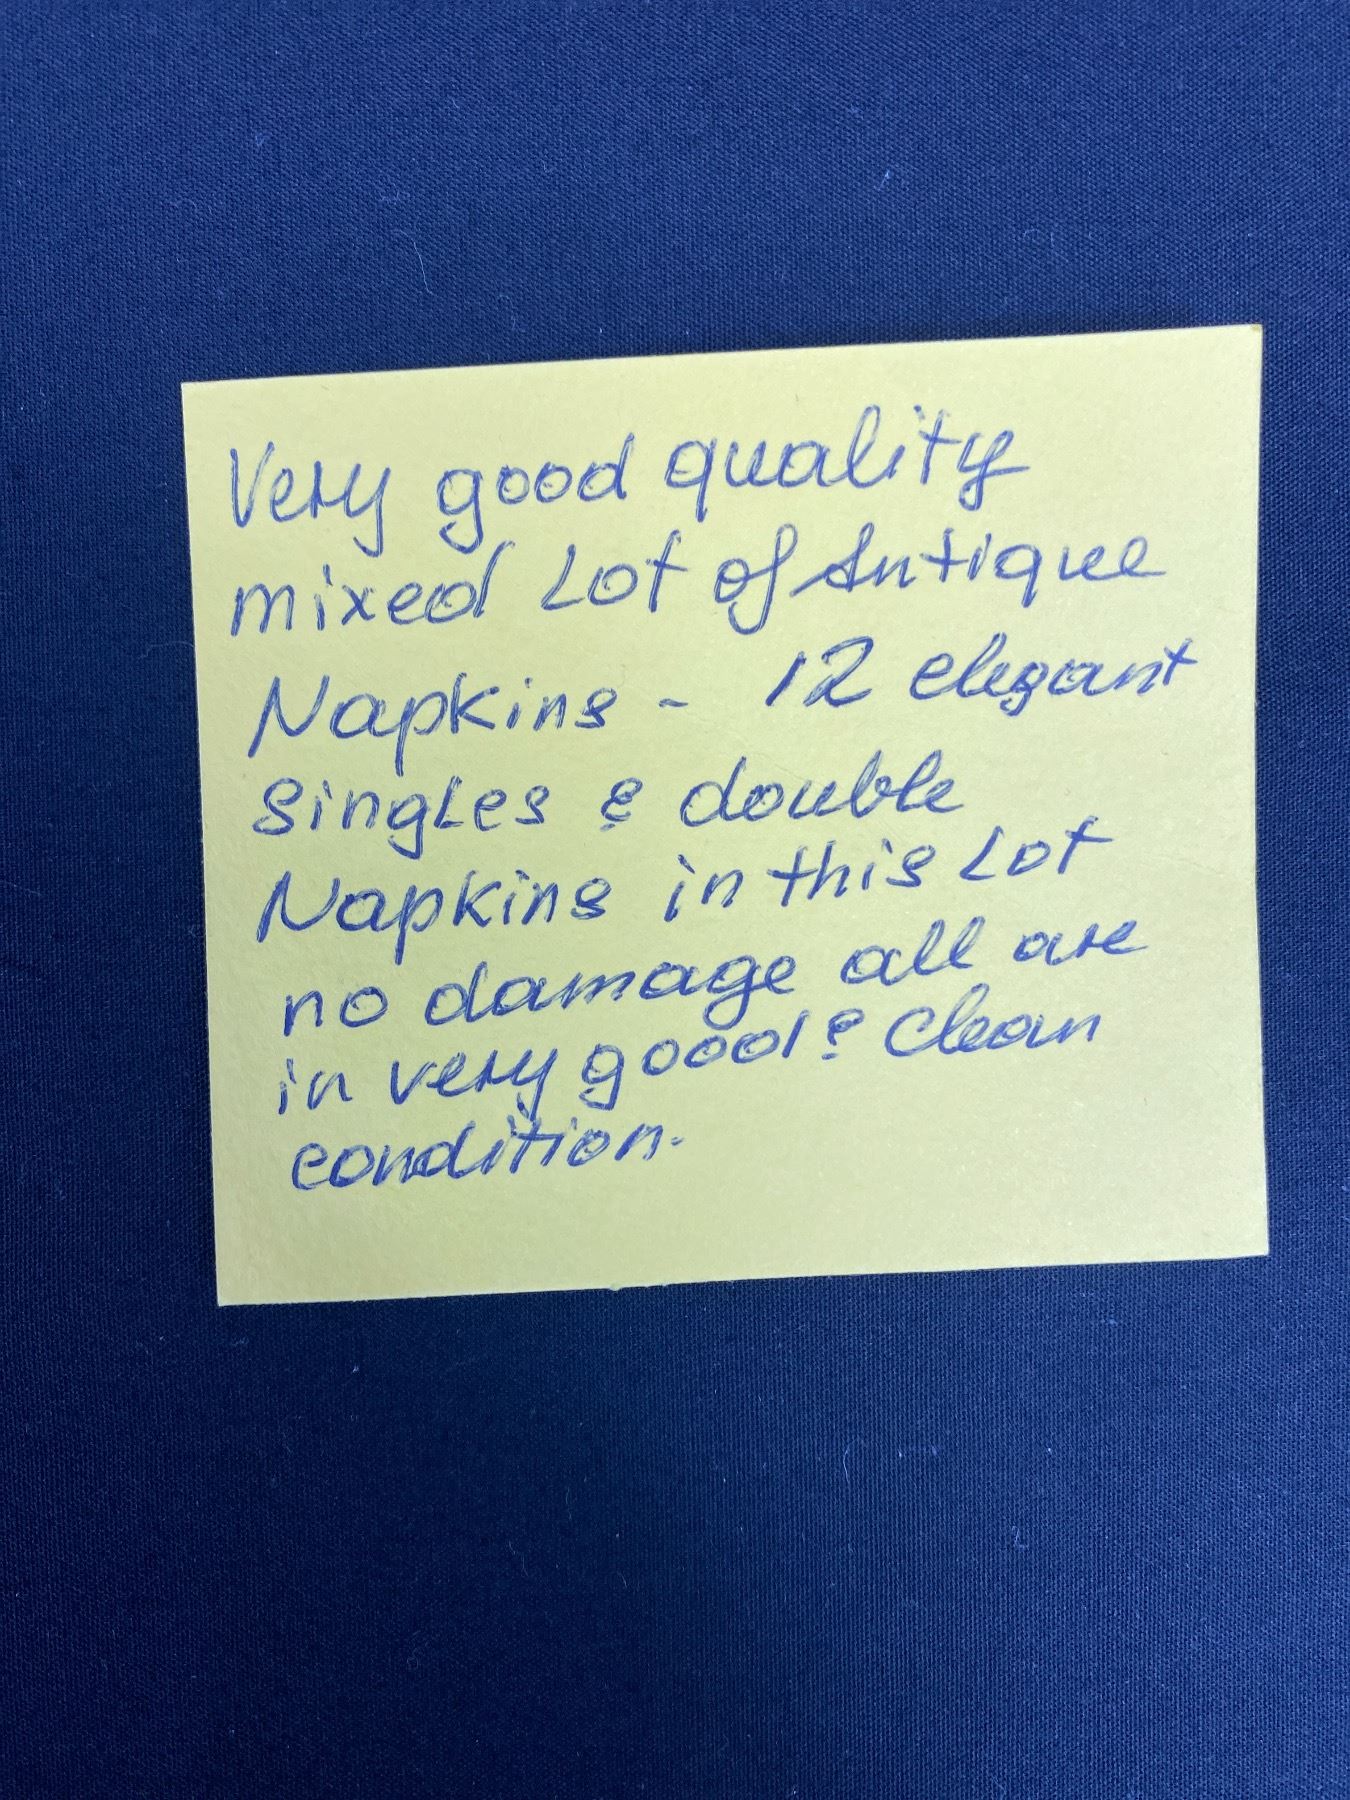 Very good quality
mixed Lot of Antique
Napkins - 12 elegant
singles & double
Napkins in this Lot
no damage all are
in very good & Clean
condition.